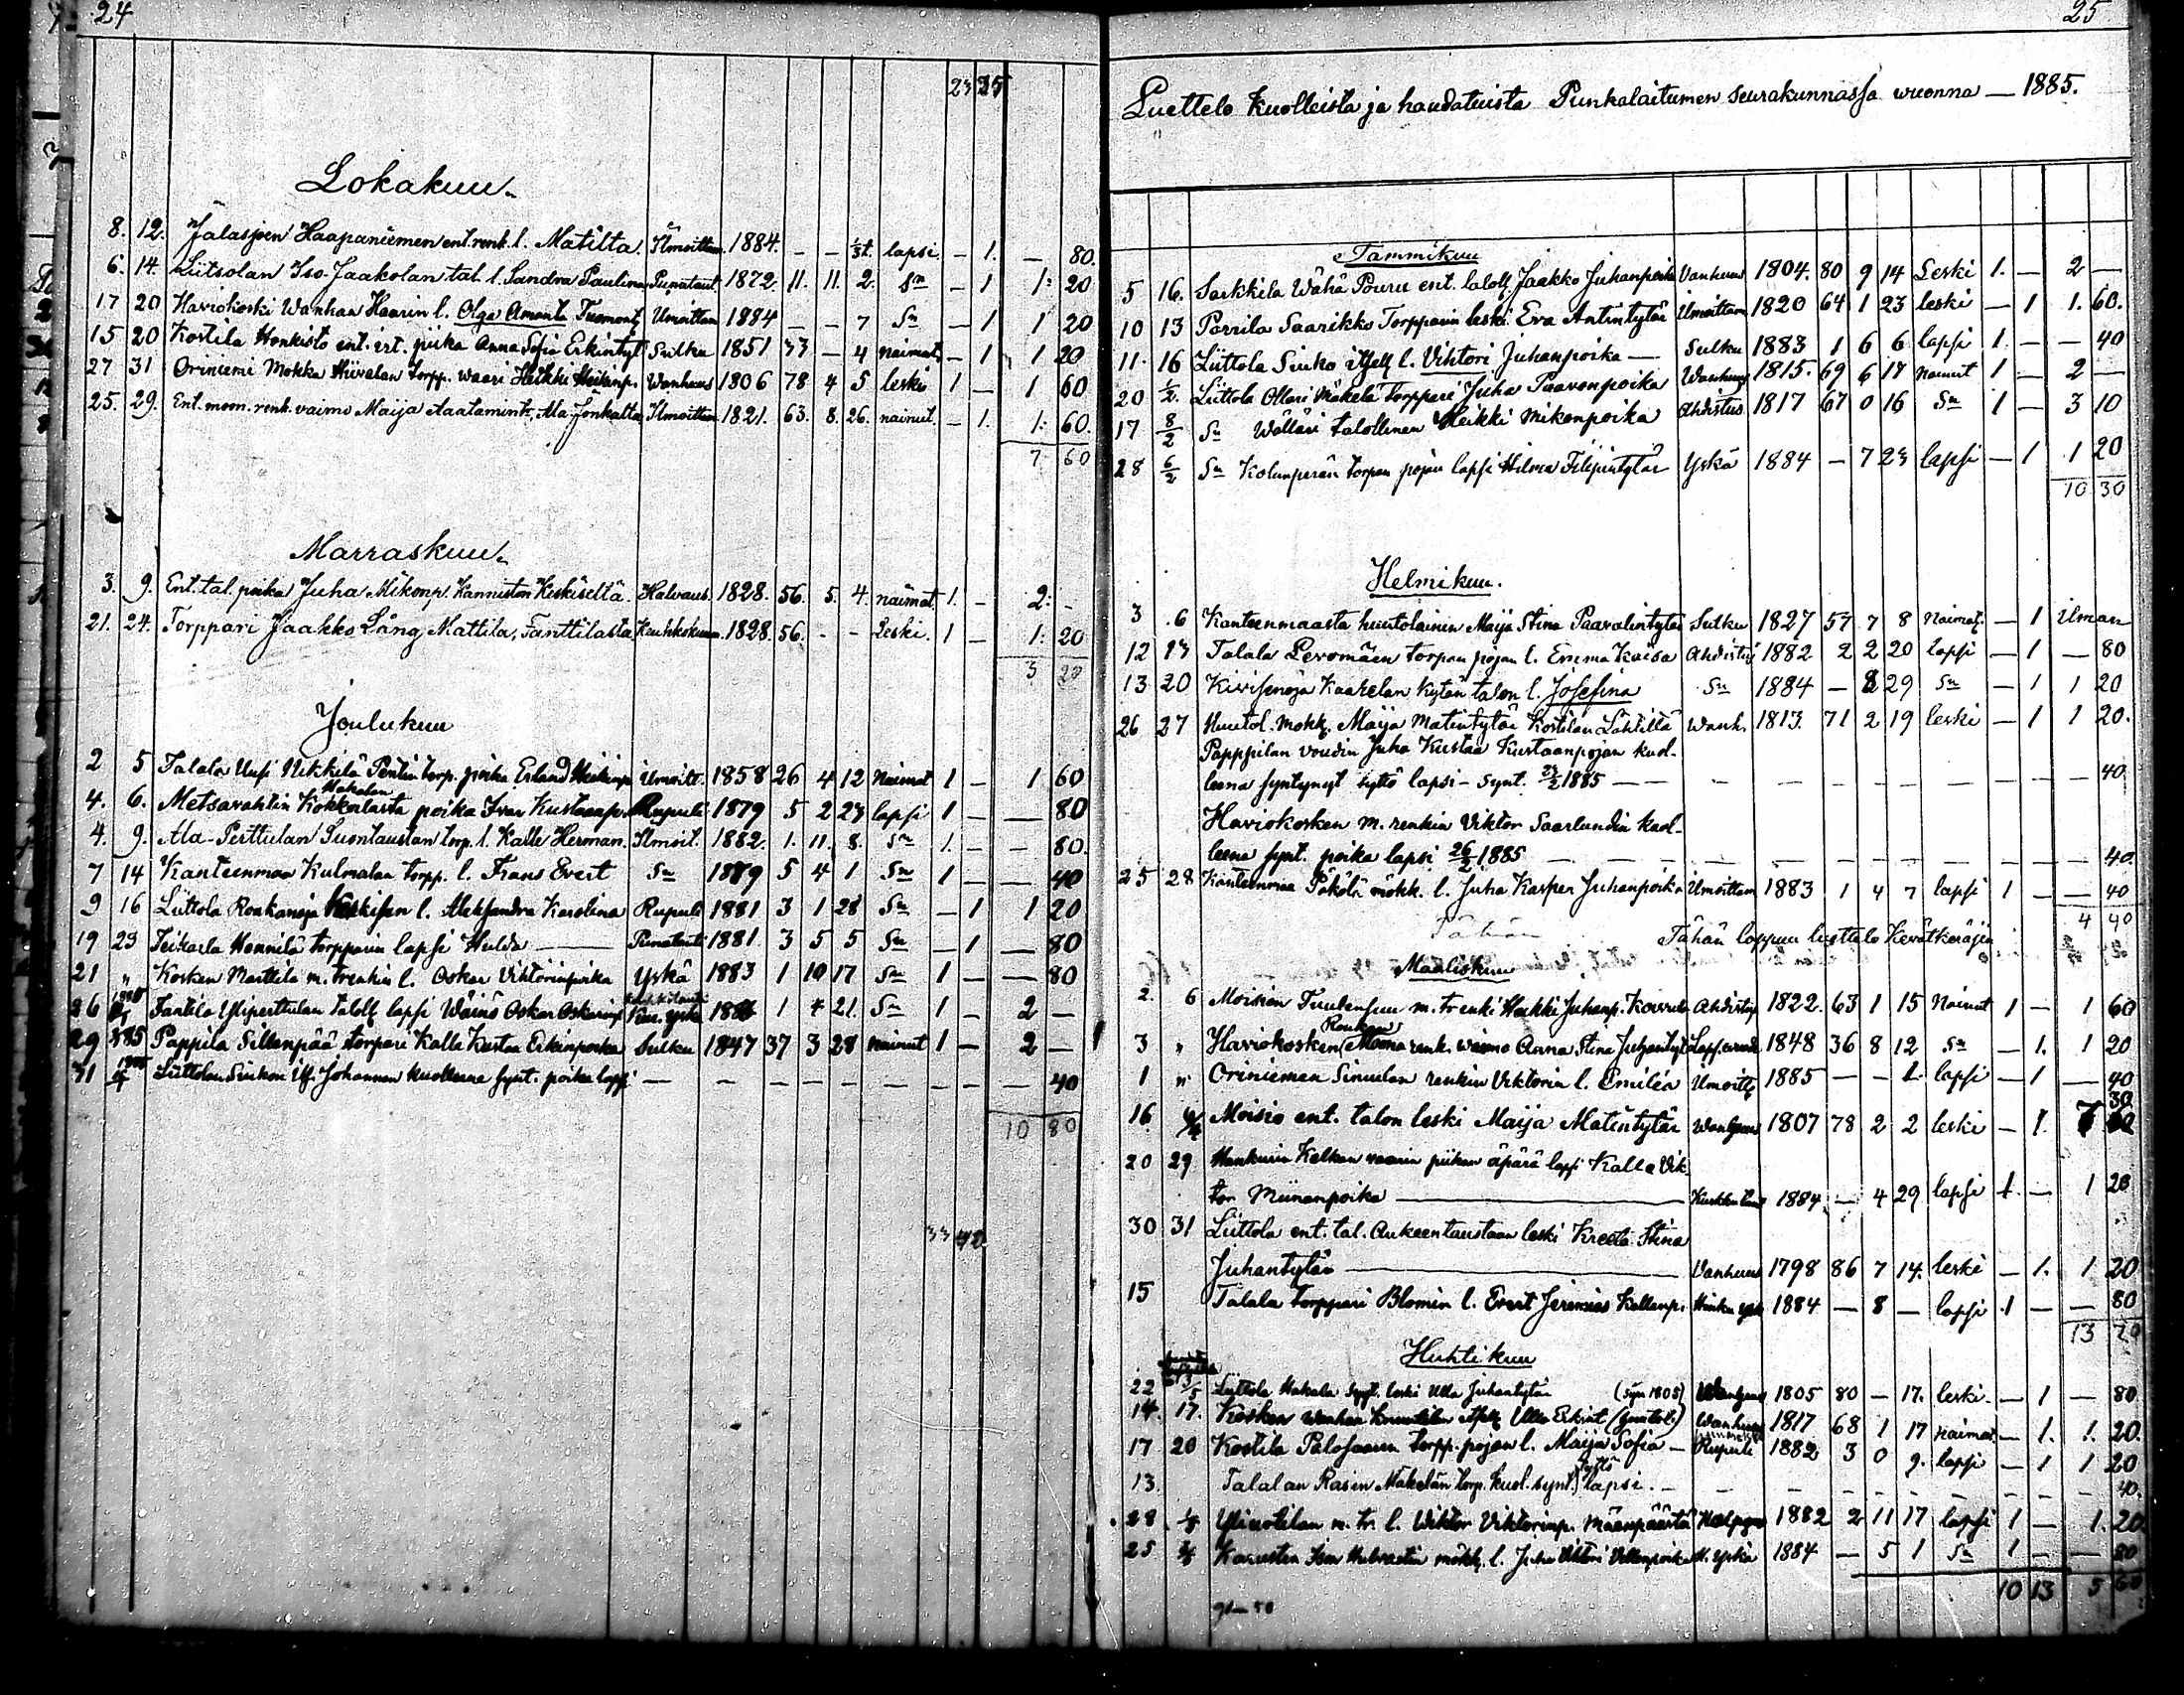 24
23 25
Lokakuu.
8. 12. Jalasjoen Haapaniemen ent. renk. l. Matilta. Ilmoittam. 1884. — — lapsi — 1. — 80.
6. 14. Liitsolan Iso-Jaakolan tal. l. Sandra Paulina Punataut. 1872. 11. 11. 2. Sn — 1 1: 20
17 20 Haviokoski Wanhan Haarin l. Olga Amanta Ilmoittam 1884 — — 7 Sn — 1 1 20
15 20 Kostila Honkisto ent. irt. piika Anna Sofia Erkintyt Sulku 1851 33 — 4 naimat. — 1 1 20
27 31 Oriniemi Mokka torpp. waari Heikki Heikinp. Wanhuus 1806 78 4 5 leski 1 — 1 60
25. 29. Ent. moon. renk. vaimo Maija Aatamint. Ala-Jonkalta Ilmoittam. 1821. 63. 8. 26. nainut. — 1. 1: 60.
7 60
Marraskuu.
3. 9. Ent. tal. poika Juha Mikonp. Kanniston Keskiseltä. Halvaus. 1828. 56. 5. 4. naimat. 1. — 2: -
21. 24. Torppari Jaakko Lång, Mattila, Fanttilasta Keuhkokuum. 1828. 56. - - Leski. 1 — 1: 20
3 20
Joulukuu
2 5 Talala Uusi Nikkilä Pentin torp. poika Erland Heikinp Ilmoitt. 1858 26 4 12 Naimat 1 — 1 60
4. 6. Metsärahtin Kokkolasta poika Ivar Kustaap. Rupuli 1879 5 2 23 lapsi 1 — — 80
4. 9. Ala-Perttulan Suontaustan torp. l. Kalle Herman. Ilmoit. 1882. 1. 11. 8. Sn 1. — — 80.
7 14 Kanteenmaa Kulmalan torpp. l. Frans Evert Sn 1879 5 4 1 Sn 1 — — 40
9 16 Liittola Roukanoja l. Aleksandra Karolina Rupuli 1881 3 1 28 Sn — 1 1 20
19 23 Teikarla Hennilä torpparin lapsi Hulda — Punatauti 1881 3 5 5 Sn — 1 — 80
21 " Kosken Marttila m. trenkin l. Oskar Viktorinpoika Yskä 1883 1 10 17 Sn 1 — — 80
26 Fantila Yliperttulan taloll lapsi Wäinö Oskar Oskarinp 1 4 21. Sn 1 — 2 —
29 Pappila Sillanpää torpari Kalle Kustaa Erkinpoika Sulku 1847 37 3 28 nainut 1 — 2 —
31 Liittolan Siukon Itf. Johannan kuolleena synt. poika lapsi — — — — — — — — — 40
10 80
33 42
25
Luettelo Kuolleista ja haudatuista Punkalaitumen seurakunnassa wuonna — 1885.
Tammikuu
5 16. Sarkkila Wähä Pouru ent. taloll. Jaakko Juhanpoika Vanhuus 1804. 80 9 14 Leski 1. — 2 —
10 13 Parrila Saarikko Torpparin leski Eva Antintytär Ilmoittam 1820 64 1 23 leski — 1 1. 60.
11. 16 Liittola Siuko itsell l. Vihtori Juhanpoika — Sulku 1883 1 6 6 lapsi 1. — — 40
20 1/2. Liittola Ollari Mäkelä torppari Juha Paavonpoika Wanhuus 1815. 69 6 17 nainut 1 — 2 —
17 8/2 Sn Wälläri talollinen Heikki Mikonpoika Ahdistus 1817 67 0 16 Sn 1 — 3 10
28 6/2 Sn Kolunperän torpan pojan lapsi Hilma Filipintytär Yskä 1884 — 7 23 lapsi — 1 1 20
10 30
Helmikuu.
3 6 Kanteenmaasta huutolainen Maija Stina Paavalintytär Sulku 1827 57 7 8 Naimat. — 1 Ilman
12 13 Talala Peromäen torpan pojan l. Emma Kaisa Ahdistus 1882 2 2 20 lapsi — 1 — 80
13 20 Kivisenoja Kaakelan Kytän talon l. Josefina Sn 1884 — 8 29 Sn — 1 1 20
26 27 Huutol. mökk. Maija Matintytär Kostilan Lähtiltä Wanh. 1813. 71 2 19 leski — 1 1 20.
Papppilan voudin Juha Kustaa Kustaanpojan kuol-
leena syntynyt tyttö lapsi - synt. 1885 — — — — — — — — 40
Haviokosken m. renkin Viktor Saarlundin kuol-
leena synt. poika lapsi 26/2 1885 — — — — — — — — 40.
25 28 Kanteenmaa Pökölä mökk. l. Juha Kasper Juhanpoika Ilmoittam 1883 1 4 7 lapsi 1 — — 40
4 40
Tähän
Tähän loppuu luettelo Kevätkeräjiin
Maaliskuu
2. 6 Moision Tuulensuu m. trenki Heikki Juhanp. Ahdistus 1822. 63 1 15 Nainut 1 — 1 60
3 " Haviokosken renk. waimo Anna Stina Juhantyt. 1848 36 8 12 Sn — 1. 1 20
1 " Oriniemen Simulan renkin Viktorin l. Emilia Ilmoitt 1885 — — 1. lapsi — 1 — 40
16 Moisio ent. talon leski Maija Matintytär Wanhuus 1807 78 2 2 leski — 1. 30
20 29 Hankuri Kelkan vaarin piikan äpärä lapsi Kalle Vik-
tor Miinanpoika — 1884 — 4 29 lapsi 1. — 1 20
30 31 Liittola ent. tal. Aukeentaustan leski Kreeta Stina
Juhantytär — Vanhuus 1798 86 7 14. leski — 1. 1 20
15 Talala torppari Blomin l. Evert Jeremias Kallenp. Hinku yskä 1884 — 8 — lapsi 1 — — 80
13 20
Huhtikuu
22 Liittola Hakala leski Ulla Juhantytär (syn 1805) 1805 80 — 17. leski — 1 — 80
14. 17. Kosken wanhan Ulla Erkint Wanhuus 1817 68 1 17 naimat. — 1. 1. 20.
17 20 Kostila Palosaaren torpp. pojan l. Maija Sofia — Rupuli 1882 3 0 9. lapsi — 1 1 20
13. Talalan Rasin Mäkelän torp. kuol. synt. tyttö lapsi. — — — — — — — — 40.
28 1/5 Ylisotilan m. tr. l. Wiktor Viktorinp. Mäenpäästä 1882 2 11 17 lapsi 1 — 1. 20.
25 mökk. l. Juha Vihtori Villenpoika H. yskä 1884 — 5 1 Sn 1 — — 80
10 13 5 60